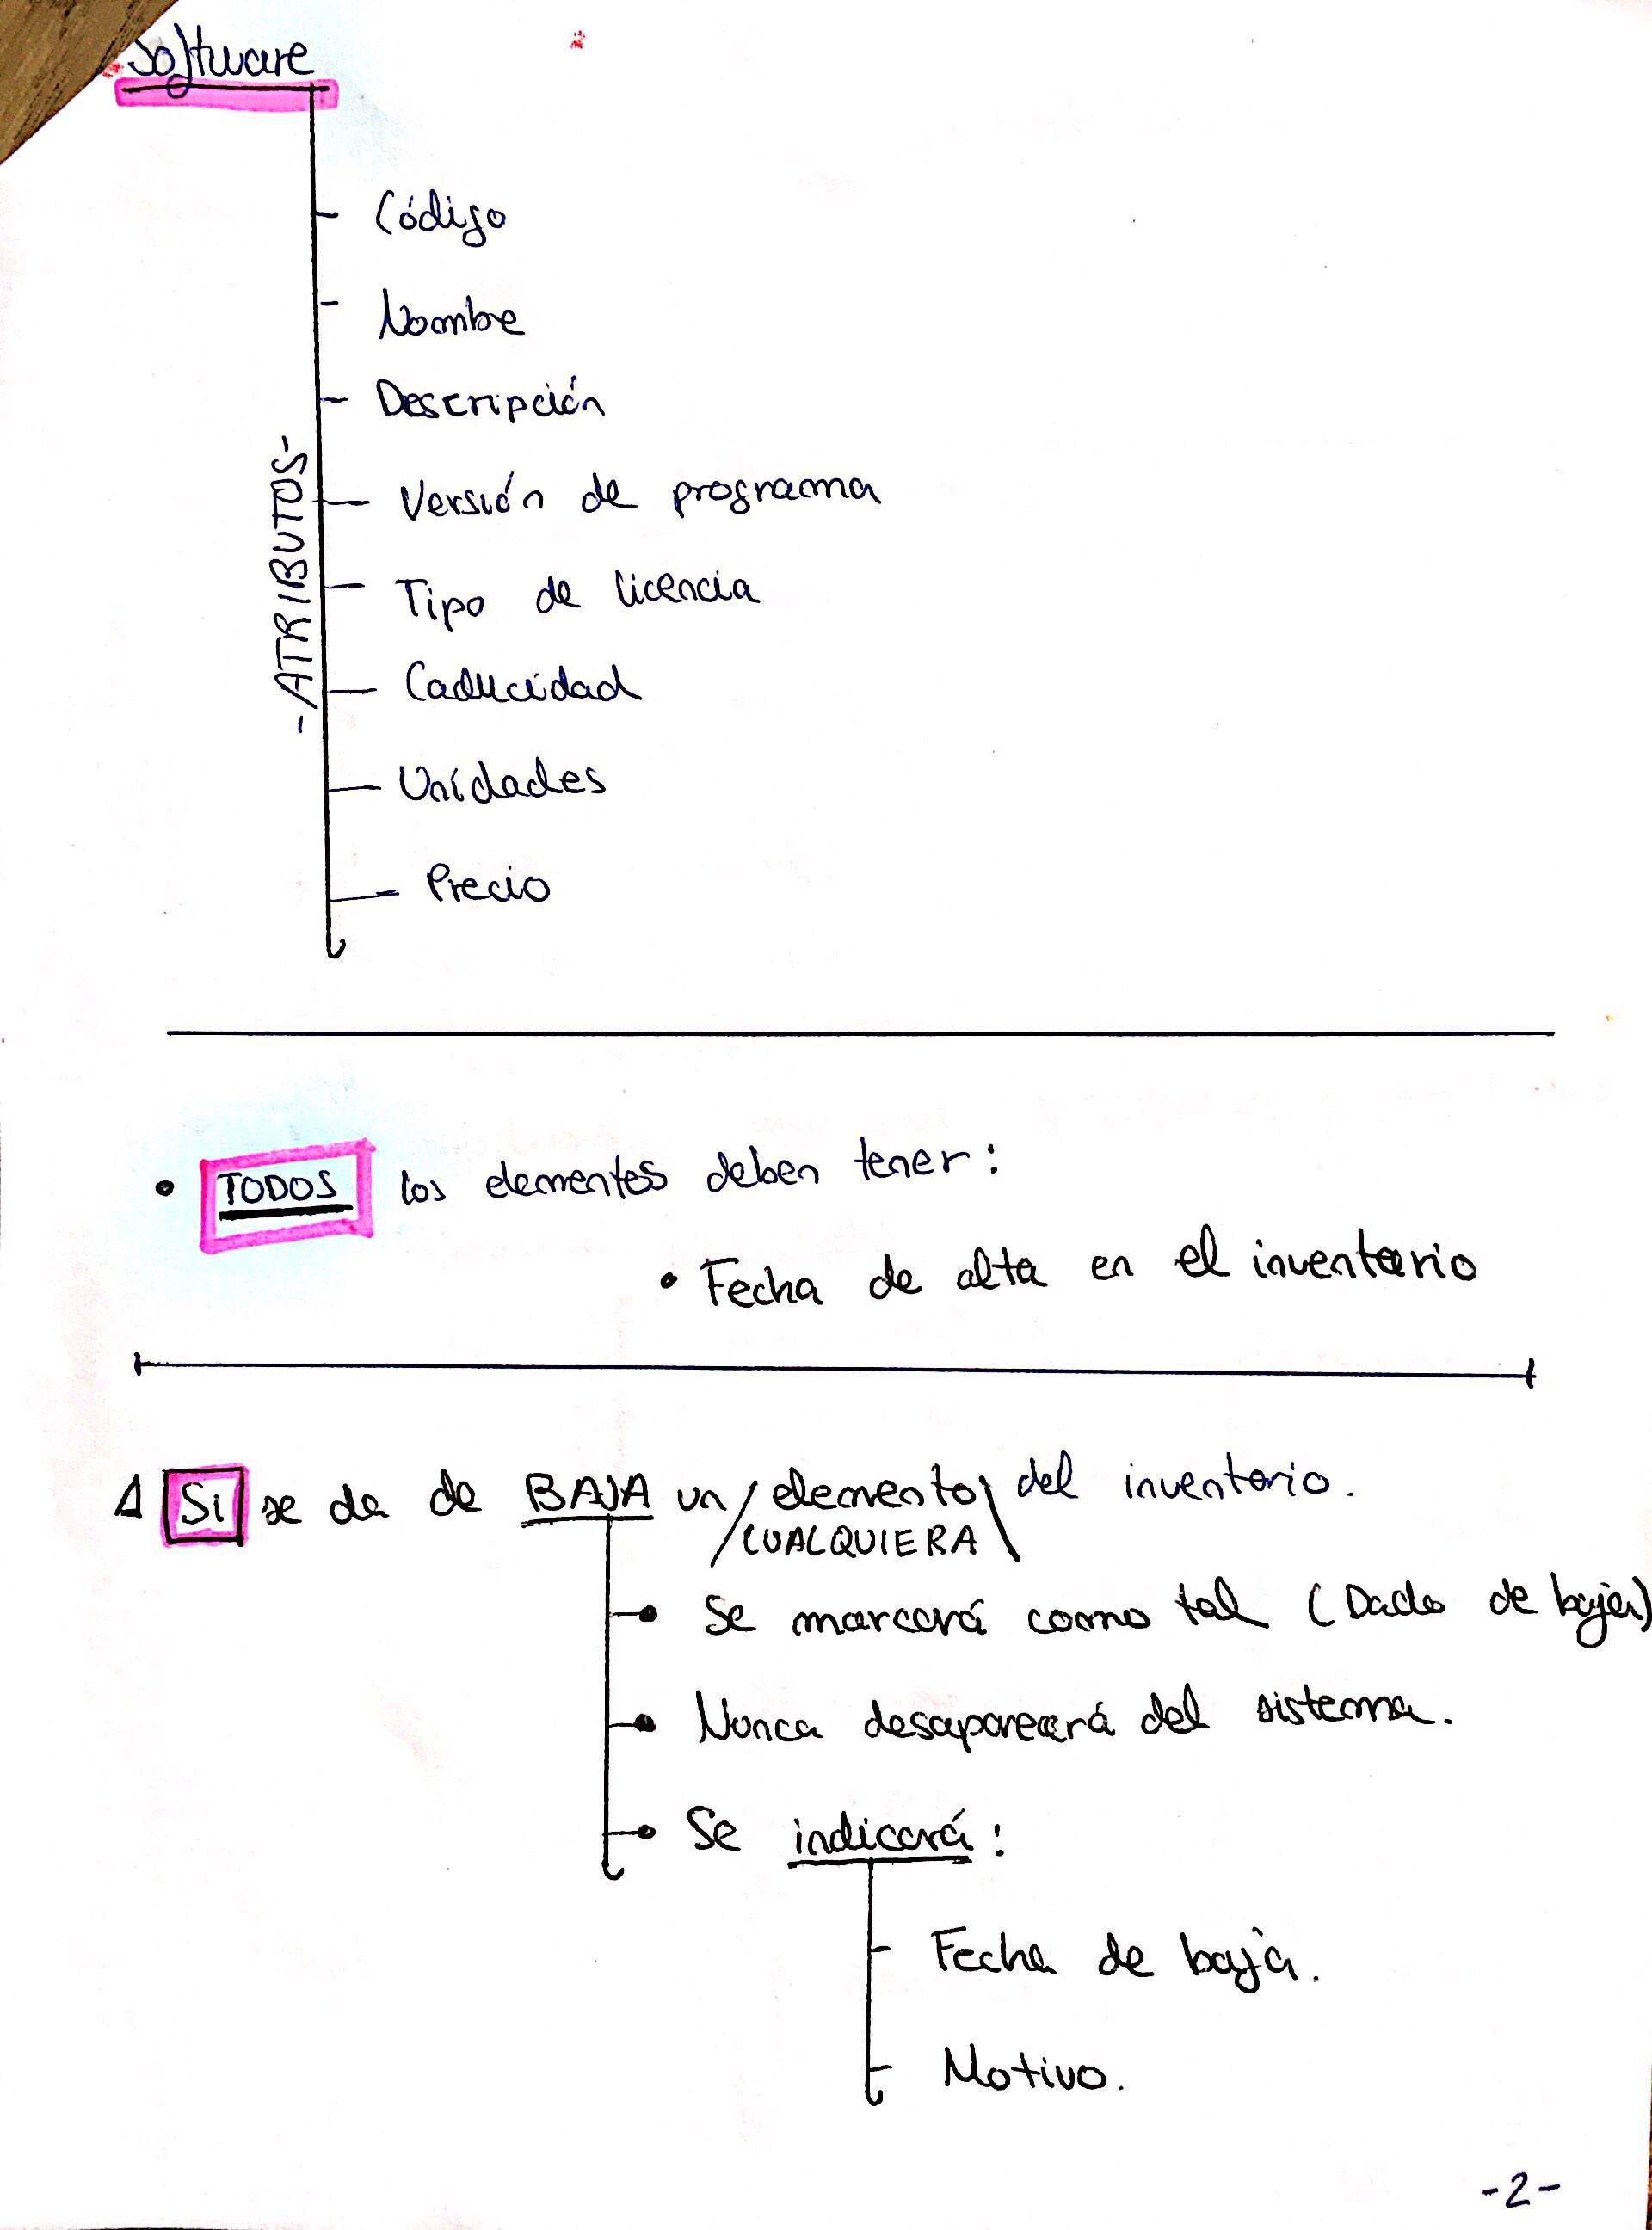 Software
Código
Nombre
Descripción
Versión de programa
-ATRIBUTOS-
Tipo de licencia
Caducidad
Unidades
Precio
• TODOS los elementos deben tener:
• Fecha de alta en el inventario
Si se da de BAJA un / elemento \ del inventario.
CUALQUIERA
Se marcará como tal (Dado de baja)
Nunca desaparecerá del sistema.
Se indicará:
Fecha de baja.
Motivo.
-2-